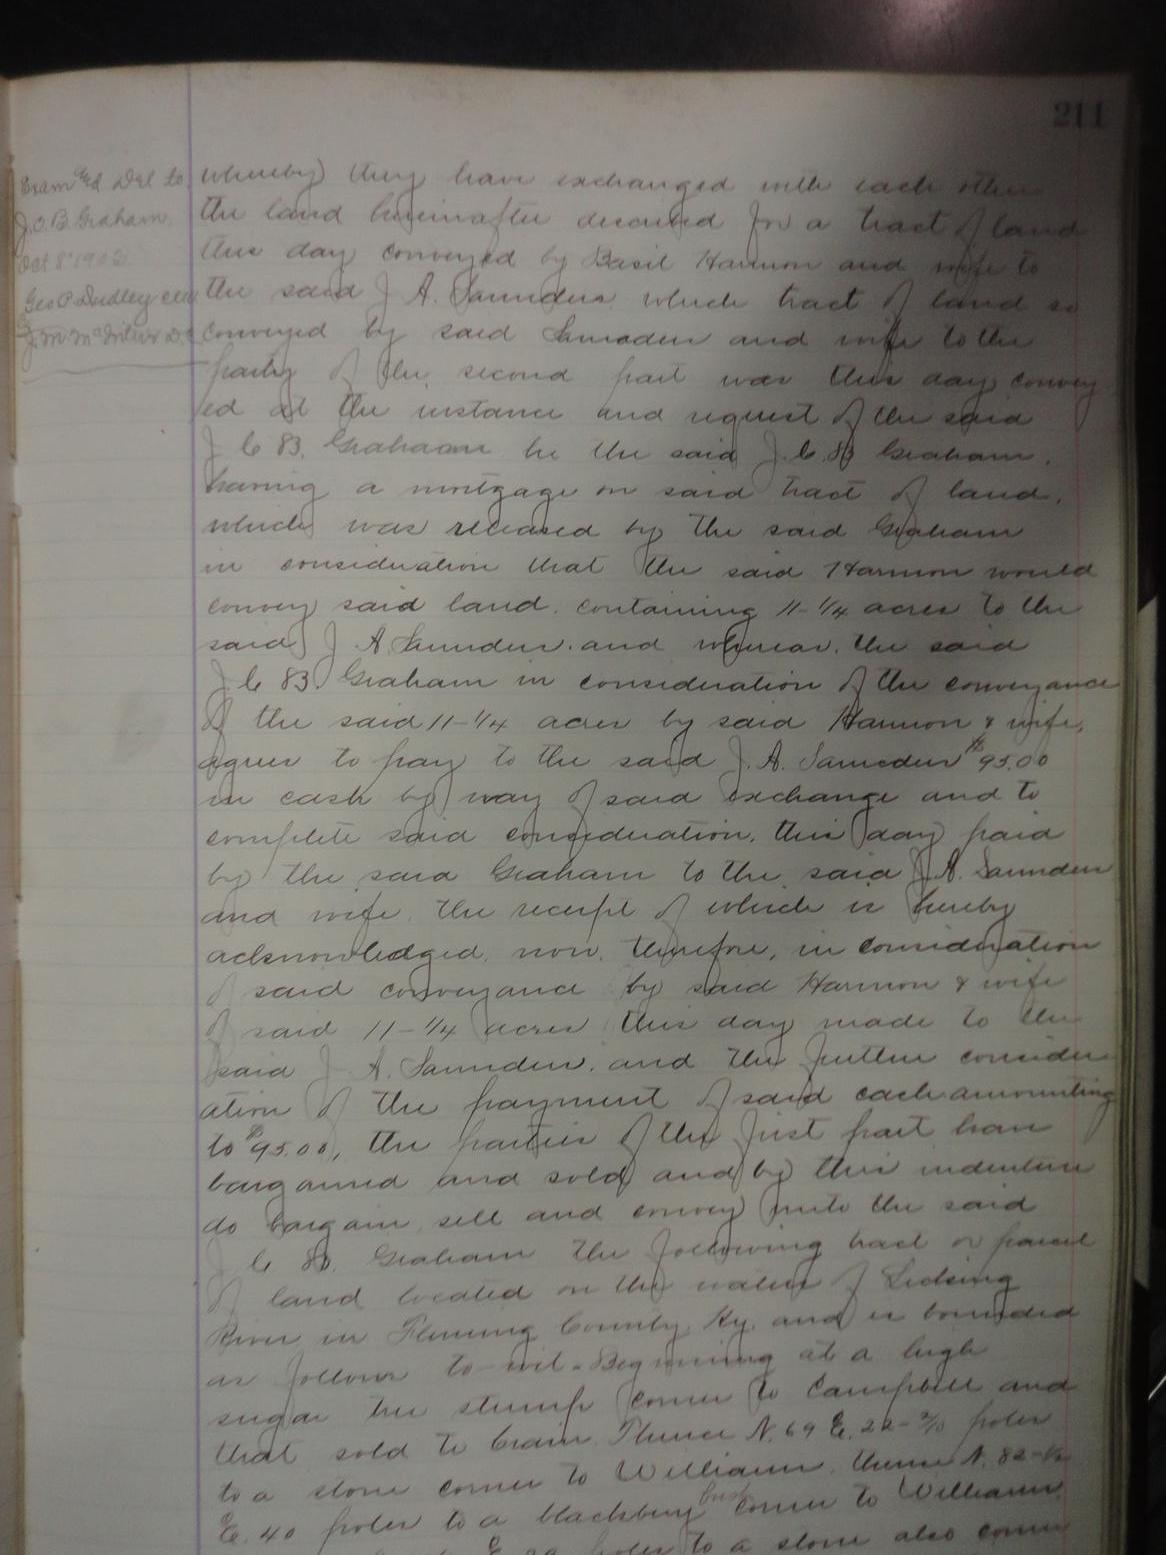 211
Exam'ed Del to
J.C.B. Graham.
Oct 8" 1903.
Geo P. Dudley clk
whereby they have exchanged with each other
the land hereinafter described for a tract of land
this day conveyed by Basil Harmon and wife to
the said J A. Saunders which tract of land so
conveyed by said Saunders and wife to the
party of the second part was this day convey
ed at the instance and request of the said
J C B. Graham he the said J. C. B Graham.
having a mortgage on said tract of land.
which was released by the said Graham
in consideration that the said Harmon would
convey said land. containing 11-1/4 acres to the
said J A. Saunders. and whereas. the said
J C B. Graham in consideration of the conveyance
of the said 11-1/4 acres by said Harmon & wife,
agrees to pay to the said J. A. Saunders $95.00
in cash by way of said exchange and to
complete said consideration. this day paid
by the said Graham to the said J A. Saunders
and wife. the receipt of which is hereby
acknowledged. now. therefore, in consideration
of said conveyance by said Harmon & wife
of said 11-1/4 acres this day made to the
said J A. Saunders. and the further consider
ation of the payment of said cash amounting
to $95.00, the parties of the first part have
bargained and sold and by this indenture
do bargain, sell and convey unto the said
J C B. Graham the following tract or parcel
of land located on the waters of Licking
River in Fleming County Ky. and is bounded
as follows to-wit - Beginning at a large
sugar tree stump corner to Campbell and
that sold to Crain. Thence N. 69 E. 22- poles
to a stone corner to Williams. thence N. 82-1/2
E. 40 poles to a blackberry bush corner to Williams
E poles to a stone also corner